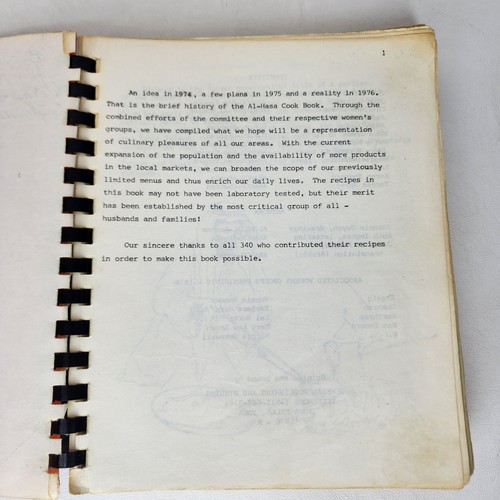 1
An idea in 1974, a few plans in 1975 and a reality in 1976.
That is the brief history of the Al-Hasa Cook Book. Through the
combined efforts of the committee and their respective women's
groups, we have compiled what we hope will be a representation
of culinary pleasures of all our areas. With the current
expansion of the population and the availability of more products
in the local markets, we can broaden the scope of our previously
limited menus and thus enrich our daily lives. The recipes in
this book may not have been laboratory tested, but their merit
has been established by the most critical group of all -
husbands and families!
Our sincere thanks to all 340 who contributed their recipes
in order to make this book possible.